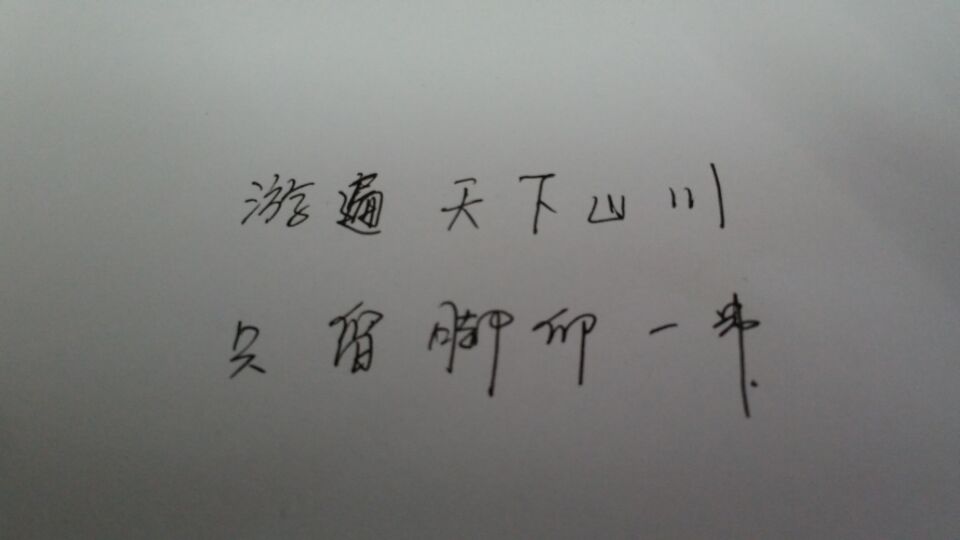 游遍天下山川
只留脚印一串